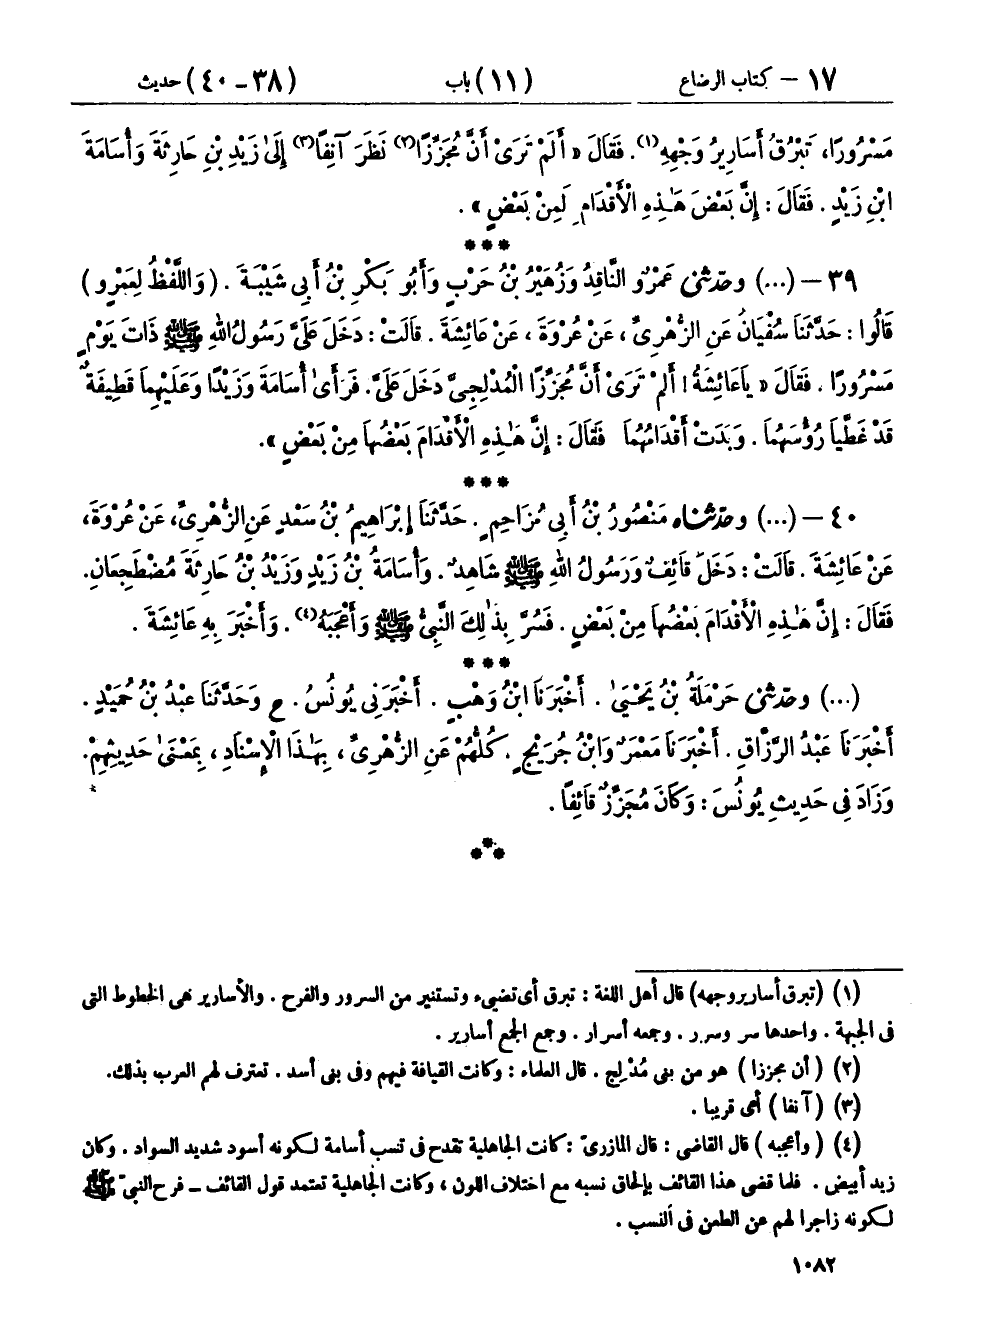 ١٧ – كتاب الرضاع (١١) باب (٣٨ – ٤٠) حديث
مَسْرُورًا، تَبْرُقُ أَسَارِيرُ وَجْهِهِ(١). فَقَالَ « أَلَمْ تَرَىْ أَنَّ مُجَزِّزًا(٢) نَظَرَ آنِفًا(٣) إِلَىٰ زَيْدِ بْنِ حَارِثَةَ وَأُسَامَةَ
ابْنِ زَيْدٍ . فَقَالَ : إِنَّ بَعْضَ هَـٰذِهِ الْأَقْدَامِ لَمِنْ بَعْضٍ » .
***
٣٩ – (...) وحدّثنى عَمْرٌو النَّاقِدُ وَزُهَيْرُ بْنُ حَرْبٍ وَأَبُو بَكْرِ بْنُ أَبِي شَيْبَةَ . ( وَاللَّفْظُ لِعَمْرٍو )
قَالُوا : حَدَّثَنَا سُفْيَانُ عَنِ الزُّهْرِىِّ ، عَنْ عُرْوَةَ ، عَنْ عَائِشَةَ . قَالَتْ : دَخَلَ عَلَىَّ رَسُولُ اللهِ ﷺ ذَاتَ يَوْمٍ
مَسْرُورًا . فَقَالَ « يَا عَائِشَةُ ! أَلَمْ تَرَىْ أَنَّ مُجَزِّزًا الْمُدْلِجِىَّ دَخَلَ عَلَىَّ . فَرَأَىٰ أُسَامَةَ وَزَيْدًا وَعَلَيْهِمَا قَطِيفَةٌ
قَدْ غَطَّيَا رُؤُسَهُمَا . وَبَدَتْ أَقْدَامُهُمَا فَقَالَ : إِنَّ هَـٰذِهِ الْأَقْدَامَ بَعْضُهَا مِنْ بَعْضٍ ».
***
٤٠ – (...) وحدّثناه مَنْصُورُ بْنُ أَبِي مُزَاحِمٍ . حَدَّثَنَا إِبْرَاهِيمُ بْنُ سَعْدٍ عَنِ الزُّهْرِىِّ، عَنْ عُرْوَةَ،
عَنْ عَائِشَةَ . قَالَتْ : دَخَلَ قَائِفٌ وَرَسُولُ اللهِ ﷺ شَاهِدٌ . وَأُسَامَةُ بْنُ زَيْدٍ وَزَيْدُ بْنُ حَارِثَةَ مُضْطَجِعَانِ.
فَقَالَ : إِنَّ هَـٰذِهِ الْأَقْدَامَ بَعْضُهَا مِنْ بَعْضٍ . فَسُرَّ بِذَٰلِكَ النَّبِىُّ ﷺ وَأَعْجَبَهُ(٤) . وَأَخْبَرَ بِهِ عَائِشَةَ .
***
(...) وحدّثنى حَرْمَلَةُ بْنُ يَحْيَىٰ . أَخْبَرَنَا ابْنُ وَهْبٍ . أَخْبَرَنِى يُونُسُ . ح وَحَدَّثَنَا عَبْدُ بْنُ حُمَيْدٍ .
أَخْبَرَنَا عَبْدُ الرَّزَّاقِ . أَخْبَرَنَا مَعْمَرٌ وَابْنُ جُرَيْجٍ . كُلُّهُمْ عَنِ الزُّهْرِىِّ ، بِهَـٰذَا الْإِسْنَادِ ، بِمَعْنَىٰ حَدِيثِهِمْ.
وَزَادَ فِى حَدِيثِ يُونُسَ : وَكَانَ مُجَزِّزٌ قَائِفًا .
***
(١) (تبرق أسارير وجهه) قال أهل اللغة : تبرق أى تضىء وتستنير من السرور والفرح . والأسارير هى الخطوط التى
فى الجبهة . واحدها سر وسرر . وجمعه أسرار . وجمع الجمع أسارير .
(٢) ( أن مجززا ) هو من بنى مُدْلِج . قال العلماء : وكانت القيافة فيهم وفى بنى أسد . تعترف لهم العرب بذلك.
(٣) ( آنفا ) أى قريبا .
(٤) ( وأعجبه ) قال القاضى : قال المازرىّ : كانت الجاهلية تقدح فى نسب أسامة لكونه أسود شديد السواد . وكان
زيد أبيض . فلما قضى هذا القائف بإلحاق نسبه مع اختلاف اللون ، وكانت الجاهلية تعتمد قول القائف – فرح النبىّ ﷺ
لكونه زاجرا لهم عن الطعن فى النسب .
١٠٨٢